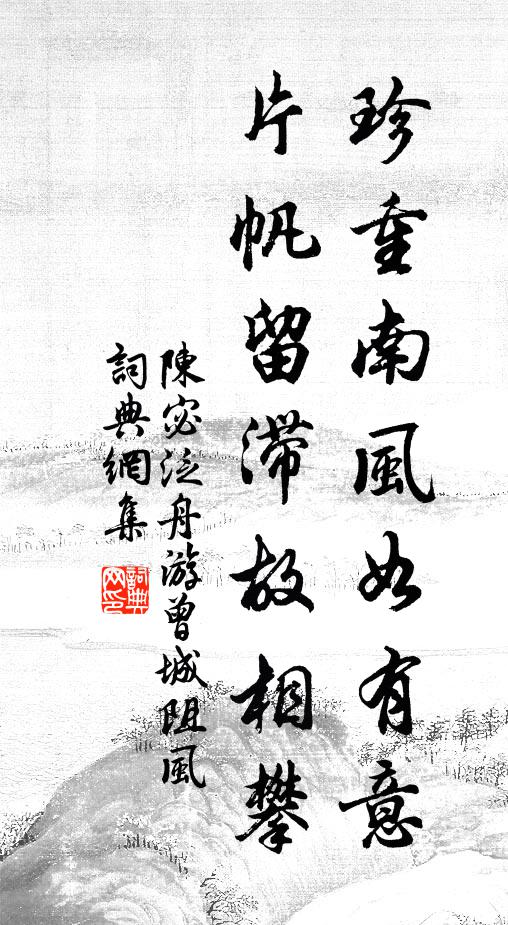 珍重南風如有意
片帆留滯故相攀
陳宓泛舟游曾城阻風
詞典網集
詞典网印